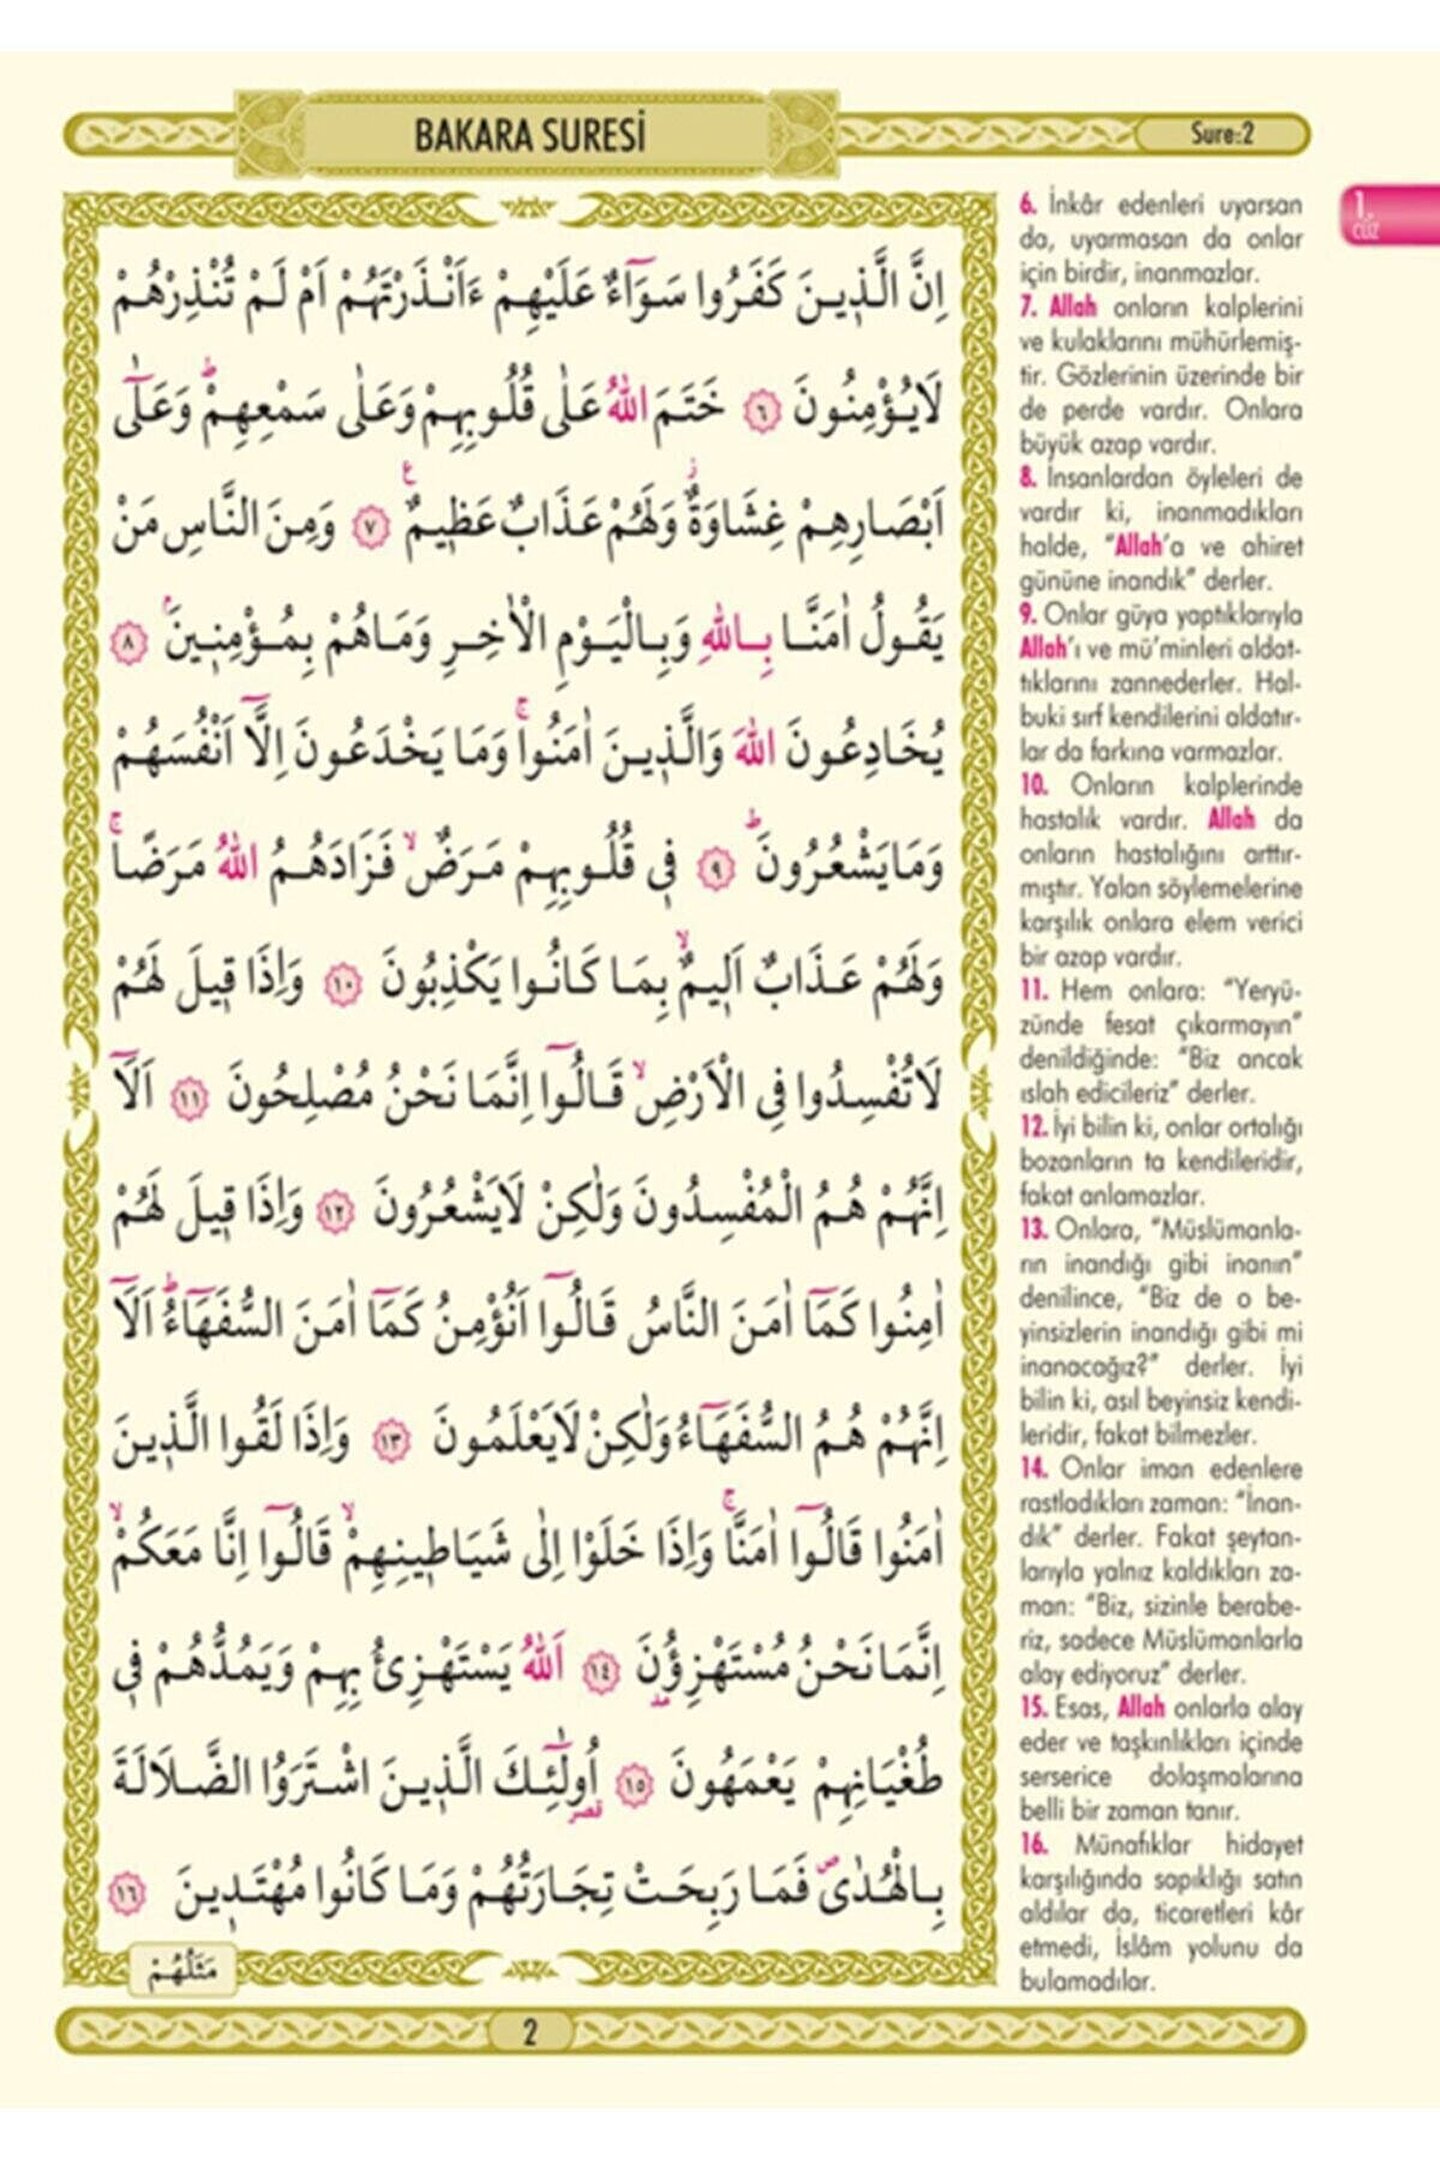 BAKARA SURESİ
Sure:2
1.
CÜZ
اِنَّ الَّذ۪ينَ كَفَرُوا سَوَٓاءٌ عَلَيْهِمْ ءَاَنْذَرْتَهُمْ اَمْ لَمْ تُنْذِرْهُمْ
لَايُؤْمِنُونَ ﴿٦﴾ خَتَمَ اللّٰهُ عَلٰى قُلُوبِهِمْ وَعَلٰى سَمْعِهِمْۜ وَعَلٰٓى
اَبْصَارِهِمْ غِشَاوَةٌۘ وَلَهُمْ عَذَابٌ عَظ۪يمٌ ﴿٧﴾ وَمِنَ النَّاسِ مَنْ
يَقُولُ اٰمَنَّا بِاللّٰهِ وَبِالْيَوْمِ الْاٰخِرِ وَمَاهُمْ بِمُؤْمِن۪ينَۢ ﴿٨﴾
يُخَادِعُونَ اللّٰهَ وَالَّذ۪ينَ اٰمَنُواۚ وَمَا يَخْدَعُونَ اِلَّٓا اَنْفُسَهُمْ
وَمَايَشْعُرُونَۜ ﴿٩﴾ ف۪ي قُلُوبِهِمْ مَرَضٌۙ فَزَادَهُمُ اللّٰهُ مَرَضًاۚ
وَلَهُمْ عَذَابٌ اَل۪يمٌۙ بِمَا كَانُوا يَكْذِبُونَ ﴿١٠﴾ وَاِذَا ق۪يلَ لَهُمْ
لَاتُفْسِدُوا فِي الْاَرْضِۙ قَالُٓوا اِنَّمَا نَحْنُ مُصْلِحُونَ ﴿١١﴾ اَلَٓا
اِنَّهُمْ هُمُ الْمُفْسِدُونَ وَلٰكِنْ لَايَشْعُرُونَ ﴿١٢﴾ وَاِذَا ق۪يلَ لَهُمْ
اٰمِنُوا كَمَٓا اٰمَنَ النَّاسُ قَالُٓوا اَنُؤْمِنُ كَمَٓا اٰمَنَ السُّفَهَٓاءُۜ اَلَٓا
اِنَّهُمْ هُمُ السُّفَهَٓاءُ وَلٰكِنْ لَايَعْلَمُونَ ﴿١٣﴾ وَاِذَا لَقُوا الَّذ۪ينَ
اٰمَنُوا قَالُٓوا اٰمَنَّاۚ وَاِذَا خَلَوْا اِلٰى شَيَاط۪ينِهِمْۙ قَالُٓوا اِنَّا مَعَكُمْۙ
اِنَّمَا نَحْنُ مُسْتَهْزِؤُ۫نَ ﴿١٤﴾ اَللّٰهُ يَسْتَهْزِئُ بِهِمْ وَيَمُدُّهُمْ ف۪ي
طُغْيَانِهِمْ يَعْمَهُونَ ﴿١٥﴾ اُو۬لٰٓئِكَ الَّذ۪ينَ اشْتَرَوُا الضَّلَالَةَ
بِالْهُدٰىۖ فَمَا رَبِحَتْ تِجَارَتُهُمْ وَمَا كَانُوا مُهْتَد۪ينَ ﴿١٦﴾
مَثَلُهُمْ
6. İnkâr edenleri uyarsan
da, uyarmasan da onlar
için birdir, inanmazlar.
7. Allah onların kalplerini
ve kulaklarını mühürlemiş-
tir. Gözlerinin üzerinde bir
de perde vardır. Onlara
büyük azap vardır.
8. İnsanlardan öyleleri de
vardır ki, inanmadıkları
halde, “Allah’a ve ahiret
gününe inandık” derler.
9. Onlar güya yaptıklarıyla
Allah’ı ve mü’minleri aldat-
tıklarını zannederler. Hal-
buki sırf kendilerini aldatır-
lar da farkına varmazlar.
10. Onların kalplerinde
hastalık vardır. Allah da
onların hastalığını arttır-
mıştır. Yalan söylemelerine
karşılık onlara elem verici
bir azap vardır.
11. Hem onlara: “Yeryü-
zünde fesat çıkarmayın”
denildiğinde: “Biz ancak
ıslah edicileriz” derler.
12. İyi bilin ki, onlar ortalığı
bozanların ta kendileridir,
fakat anlamazlar.
13. Onlara, “Müslümanla-
rın inandığı gibi inanın”
denilince, “Biz de o be-
yinsizlerin inandığı gibi mi
inanacağız?” derler. İyi
bilin ki, asıl beyinsiz kendi-
leridir, fakat bilmezler.
14. Onlar iman edenlere
rastladıkları zaman: “İnan-
dık” derler. Fakat şeytan-
larıyla yalnız kaldıkları za-
man: “Biz, sizinle berabe-
riz, sadece Müslümanlarla
alay ediyoruz” derler.
15. Esas, Allah onlarla alay
eder ve taşkınlıkları içinde
serserice dolaşmalarına
belli bir zaman tanır.
16. Münafıklar hidayet
karşılığında sapıklığı satın
aldılar da, ticaretleri kâr
etmedi, İslâm yolunu da
bulamadılar.
2